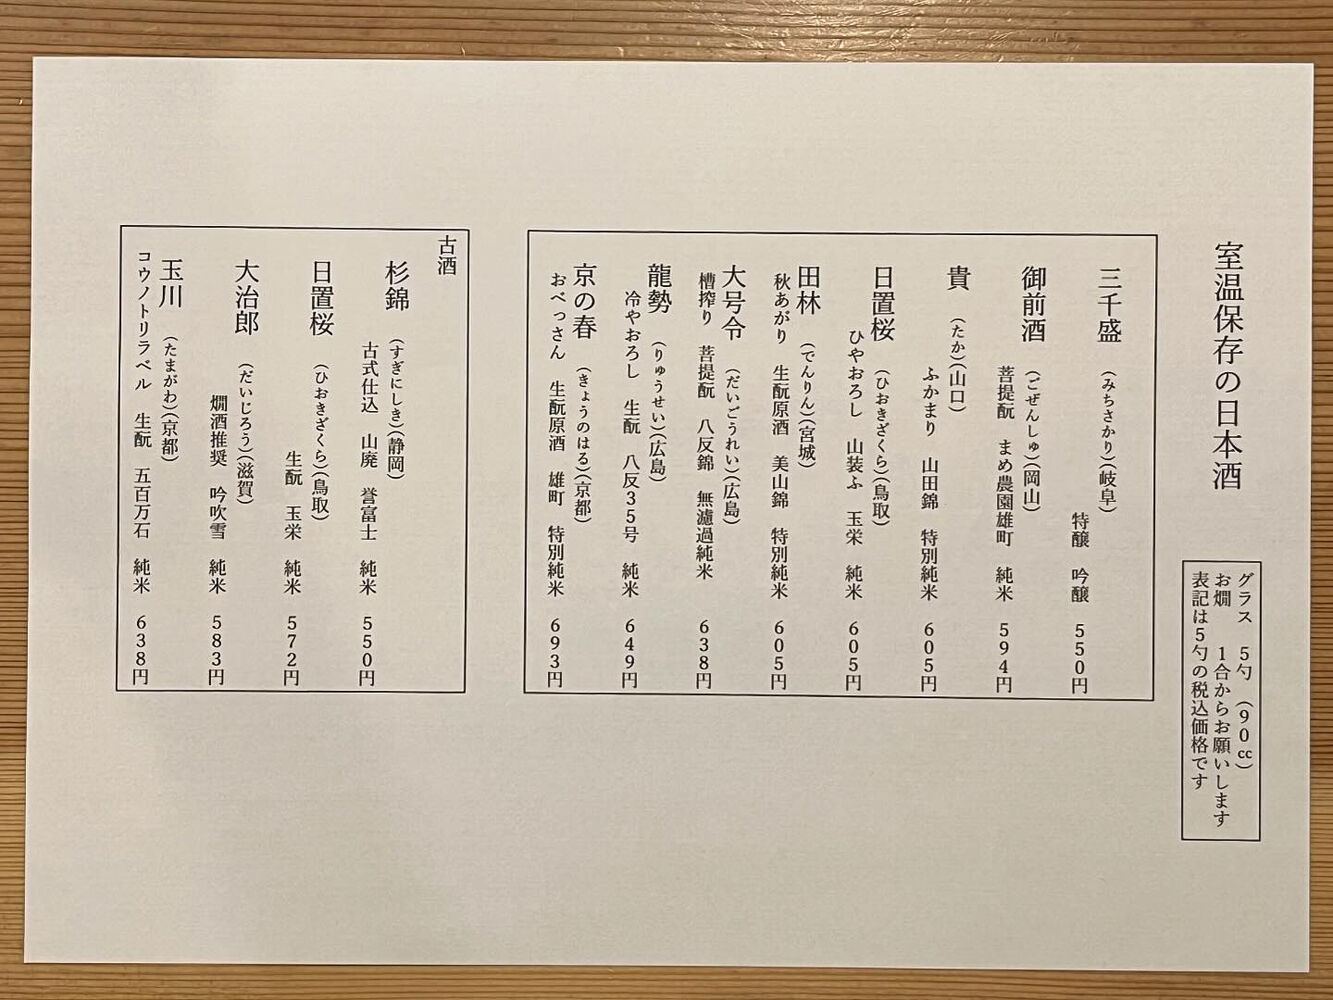 室温保存の日本酒
グラス　5勺　（90㏄）
お燗　　1合からお願いします
表記は5勺の税込価格です
三千盛　（みちさかり）（岐阜）
特醸　吟醸　550円
御前酒　（ごぜんしゅ）（岡山）
菩提酛　まめ農園雄町　純米　594円
貴　（たか）（山口）
ふかまり　山田錦　特別純米　605円
日置桜　（ひおきざくら）（鳥取）
ひやおろし　山装ふ　玉栄　純米　605円
田林　（でんりん）（宮城）
秋あがり　生酛原酒　美山錦　特別純米　605円
大号令　（だいごうれい）（広島）
槽搾り　菩提酛　八反錦　無濾過純米　638円
龍勢　（りゅうせい）（広島）
冷やおろし　生酛　八反35号　純米　649円
京の春　（きょうのはる）（京都）
おべっさん　生酛原酒　雄町　特別純米　693円
古酒
杉錦　（すぎにしき）（静岡）
古式仕込　山廃　誉富士　純米　550円
日置桜　（ひおきざくら）（鳥取）
生酛　玉栄　純米　572円
大治郎　（だいじろう）（滋賀）
燗酒推奨　吟吹雪　純米　583円
玉川　（たまがわ）（京都）
コウノトリラベル　生酛　五百万石　純米　638円